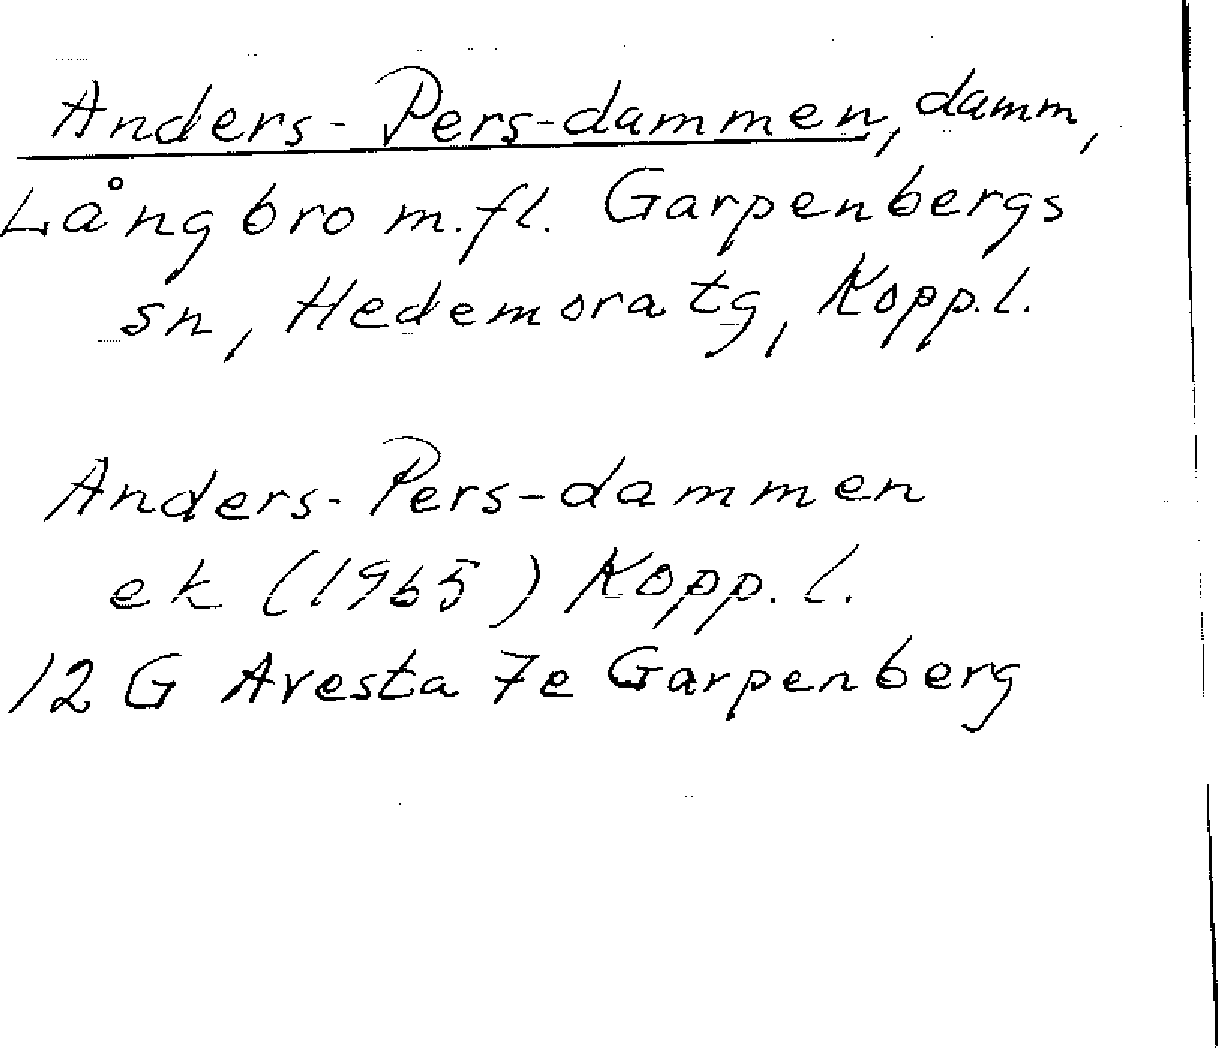 Anders-Pers-dammen, damm,
Långbro m.fl. Garpenbergs
sn, Hedemora tg, Kopp.l.
Anders-Pers-dammen
ek (1965) Kopp.l.
12 G Avesta 7e Garpenberg